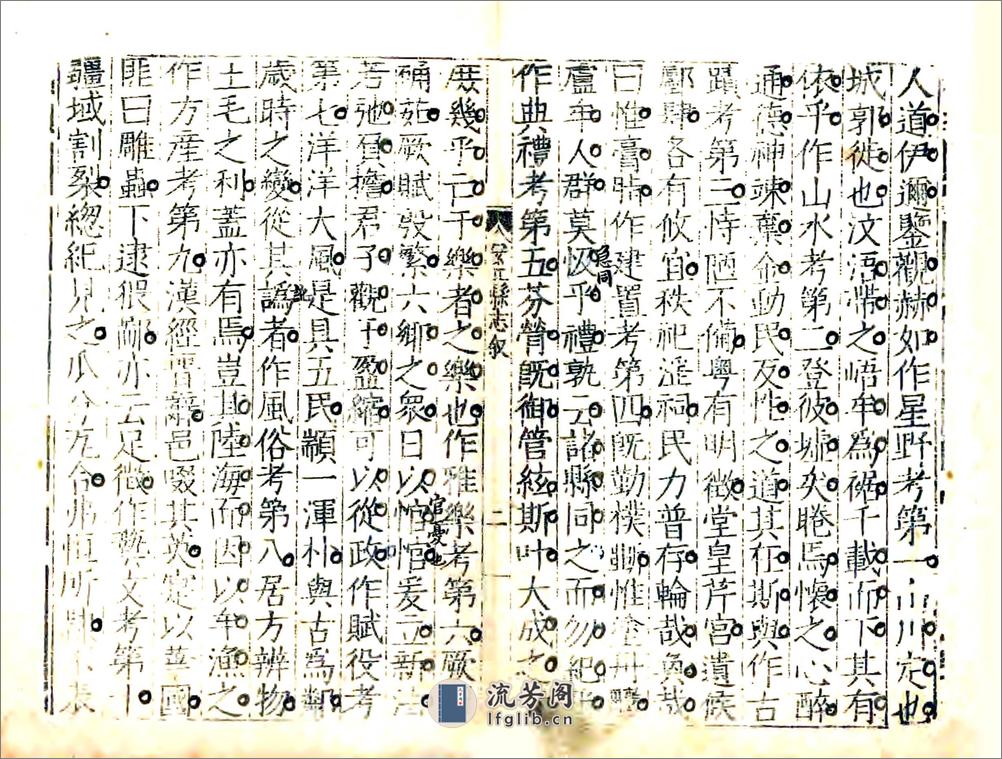 人道伊邇鑒觀赫如作星野考第一山川定也
城郭徙也汶浯帶之峿牟爲裾千載而下其有
依乎作山水考第二登彼墟矣睠焉懷之心醉
通德神竦棄命動民反性之道其在斯與作古
蹟考第三恃陋不備粵有明徵堂皇芹宮遺候
郵肆各有攸宜秩祀淫祠民力普存輪哉奐哉
曰惟膏肺作建置考第四既勤樸斲惟塗丹雘
盧牟人群莫忣乎禮孰云諸縣同之而勿紀
急同
作典禮考第五芬膋既御管絃斯叶大成之
安丘縣志叙
二
庶幾乎亡于樂者之樂也作雅樂考第六厥
桶茹厥賦殷繁六鄉之衆日以悹悹爰立新法
官憂也
若弛負擔君子觀于盈縮可以從政作賦役考
第七洋洋大風是具五民顓一渾朴與古爲鄰
歲時之變從其譌者作風俗考第八居方辨物
土毛之利蓋亦有焉豈其陸海而因以牟漁之
作方產考第九漢經晉語邑啜其英定以華國
匪曰雕蟲下逮稗鄙亦云足徵作藝文考第十
疆域割裂總紀見之瓜分九今弗恒所隸